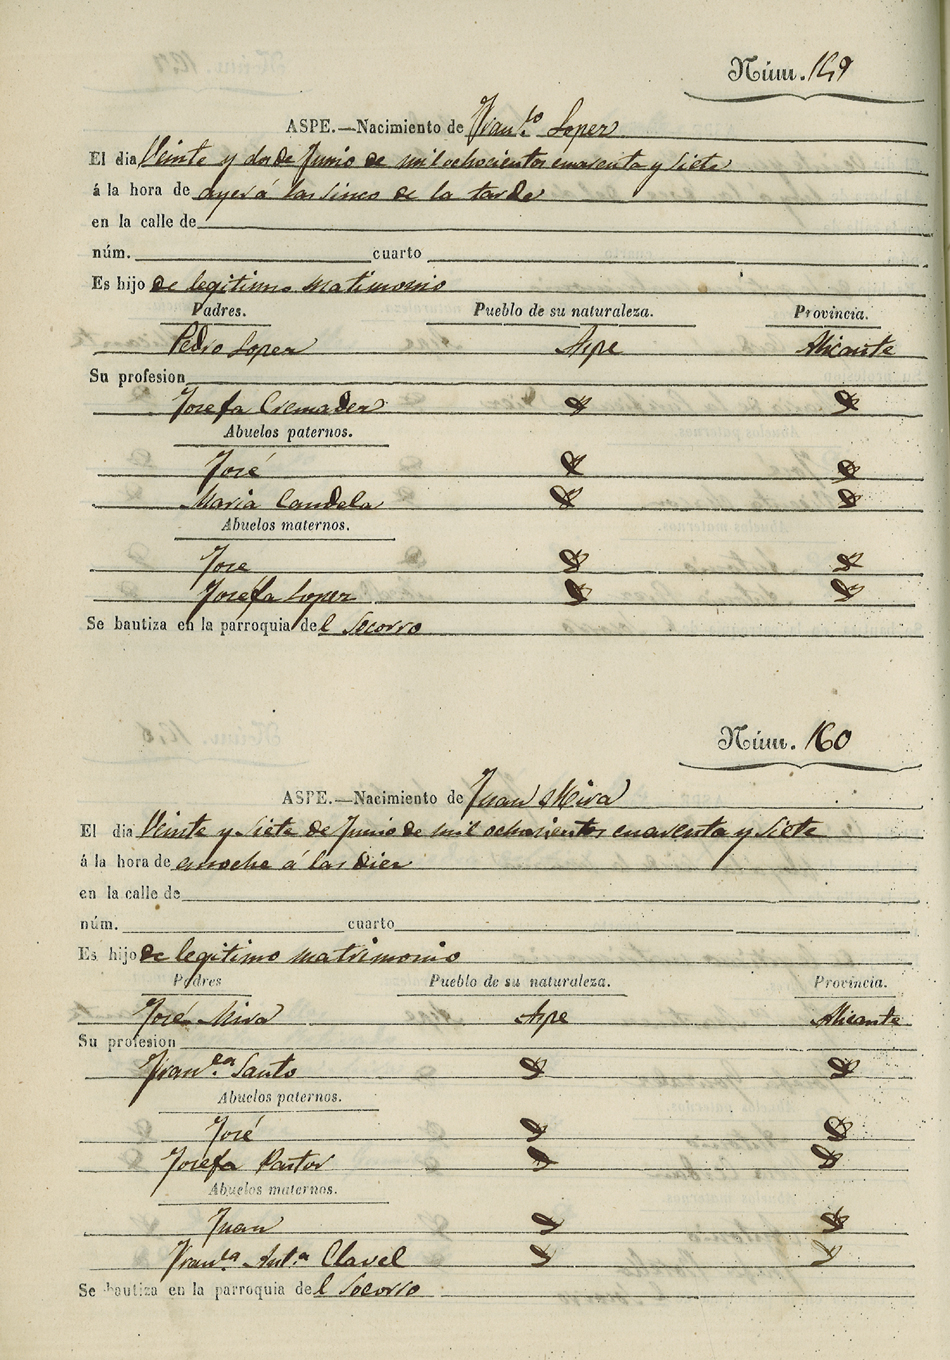 Núm. 159
ASPE.—Nacimiento de Fran.co Lopez
El dia Veinte y dos de Junio de mil ochocientos cuarenta y siete
á la hora de ayer á las sinco de la tarde
en la calle de
núm. cuarto
Es hijo de legitimo matimonio
Padres. Pueblo de su naturaleza. Provincia.
Pedro Lopez Aspe Alicante
Su profesion
Josefa Cremades
Abuelos paternos.
José
Maria Candela
Abuelos maternos.
Jose
Josefa Lopez
Se bautiza en la parroquia del Socorro
Núm. 160
ASPE.—Nacimiento de Juan Mira
El dia Veinte y siete de Junio de mil ochocientos cuarenta y siete
á la hora de anoche á las diez
en la calle de
núm. cuarto
Es hijo de legitimo matrimonio
Padres Pueblo de su naturaleza. Provincia.
José Mira Aspe Alicante
Su profesion
Fran.ca Santo
Abuelos paternos.
José
Josefa Pastor
Abuelos maternos.
Juan
Fran.ca Ant.a Clavel
Se bautiza en la parroquia del Socorro